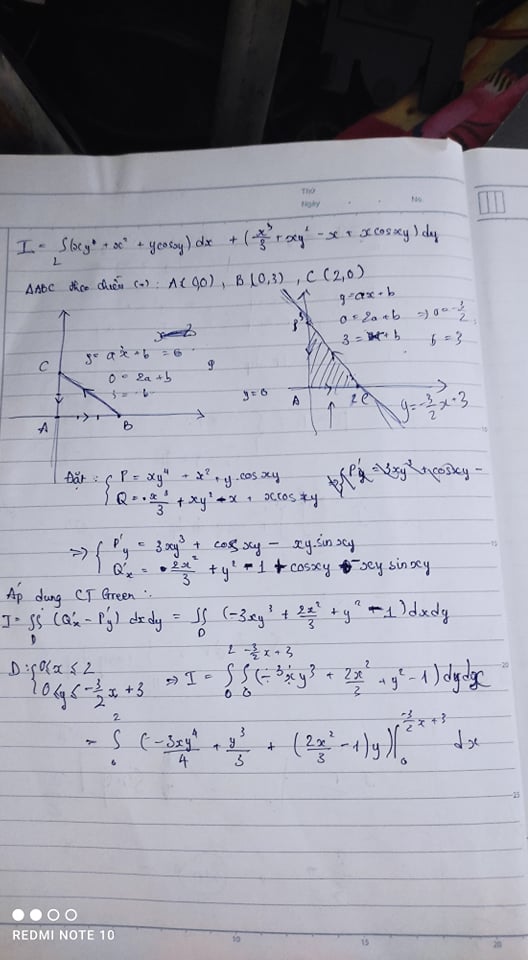 Thứ
Ngày . . No.
I = ∫(xy⁴ + x² + ycosxy) dx + (x³/3 + xy² - x + xcosxy) dy
L
ΔABC theo chiều (+): A(0,0), B(0,3), C(2,0)
y = ax + b = 0
0 = 2a + b
C
A
B
y = ax + b
0 = 2a + b ⇒ a = -3/2
b = 3
y = 0
A
2 C
y = -3/2 x + 3
Đặt: { P = xy⁴ + x² + y.cosxy
Q = x³/3 + xy² - x + xcosxy
⇒ { P'y = 3xy³ + cosxy - xy.sinxy
Q'x = 2x²/3 + y² - 1 + cosxy - xy sinxy
Áp dụng CT Green:
I = ∬ (Q'x - P'y) dxdy = ∬ (-3xy³ + 2x²/3 + y² - 1) dxdy
D D
D: { 0 ≤ x ≤ 2
0 ≤ y ≤ -3/2 x + 3 ⇒ I = ∫₀² ∫₀^(-3/2 x + 3) (-3xy³ + 2x²/3 + y² - 1) dydx
= ∫₀² (-3xy⁴/4 + y³/3 + (2x²/3 - 1)y) |₀^(-3/2 x + 3) dx
REDMI NOTE 10
10 15 20
15
20
25